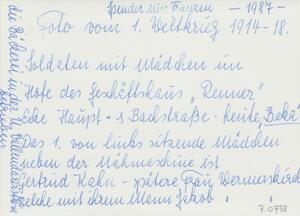 Spender Wir Tussen - 1987 -
Foto vom 1. Weltkrieg 1914-18.
Soldaten mit Mädchen im
Hofe des Geschäftshaus „Renner"
Ecke Haupt- & Bachstraße - heute „Beka"
Das 1. von links sitzende Mädchen
neben der Nähmaschine ist
Gertrud Kahn - spätere Frau Wermerskirch
welche mit ihrem Mann Jakob " "
die Bäckerei in der
7.0738